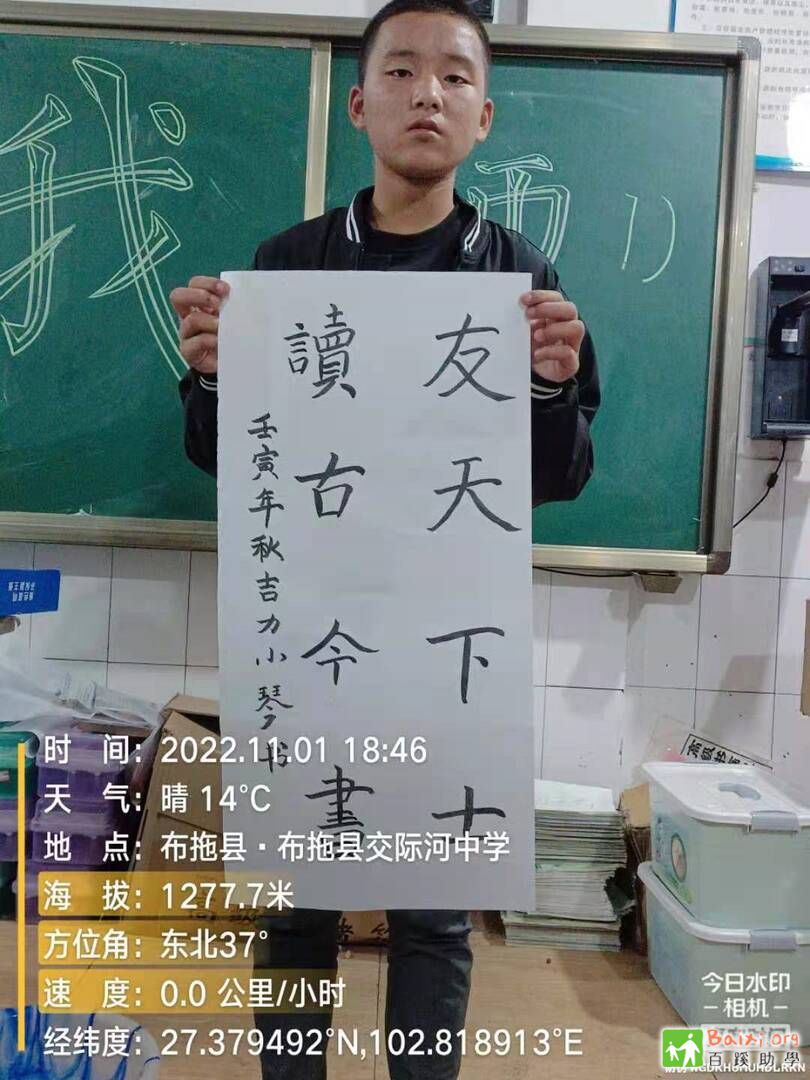 我
西
友天下士
讀古今書
壬寅年秋吉力小琴书
时 间：2022.11.01 18:46
天 气：晴 14℃
地 点：布拖县·布拖县交际河中学
海 拔：1277.7米
方位角：东北37°
速 度：0.0 公里/小时
经纬度：27.379492°N,102.818913°E
今日水印
-相机-
Baixi.org
百蹊助學